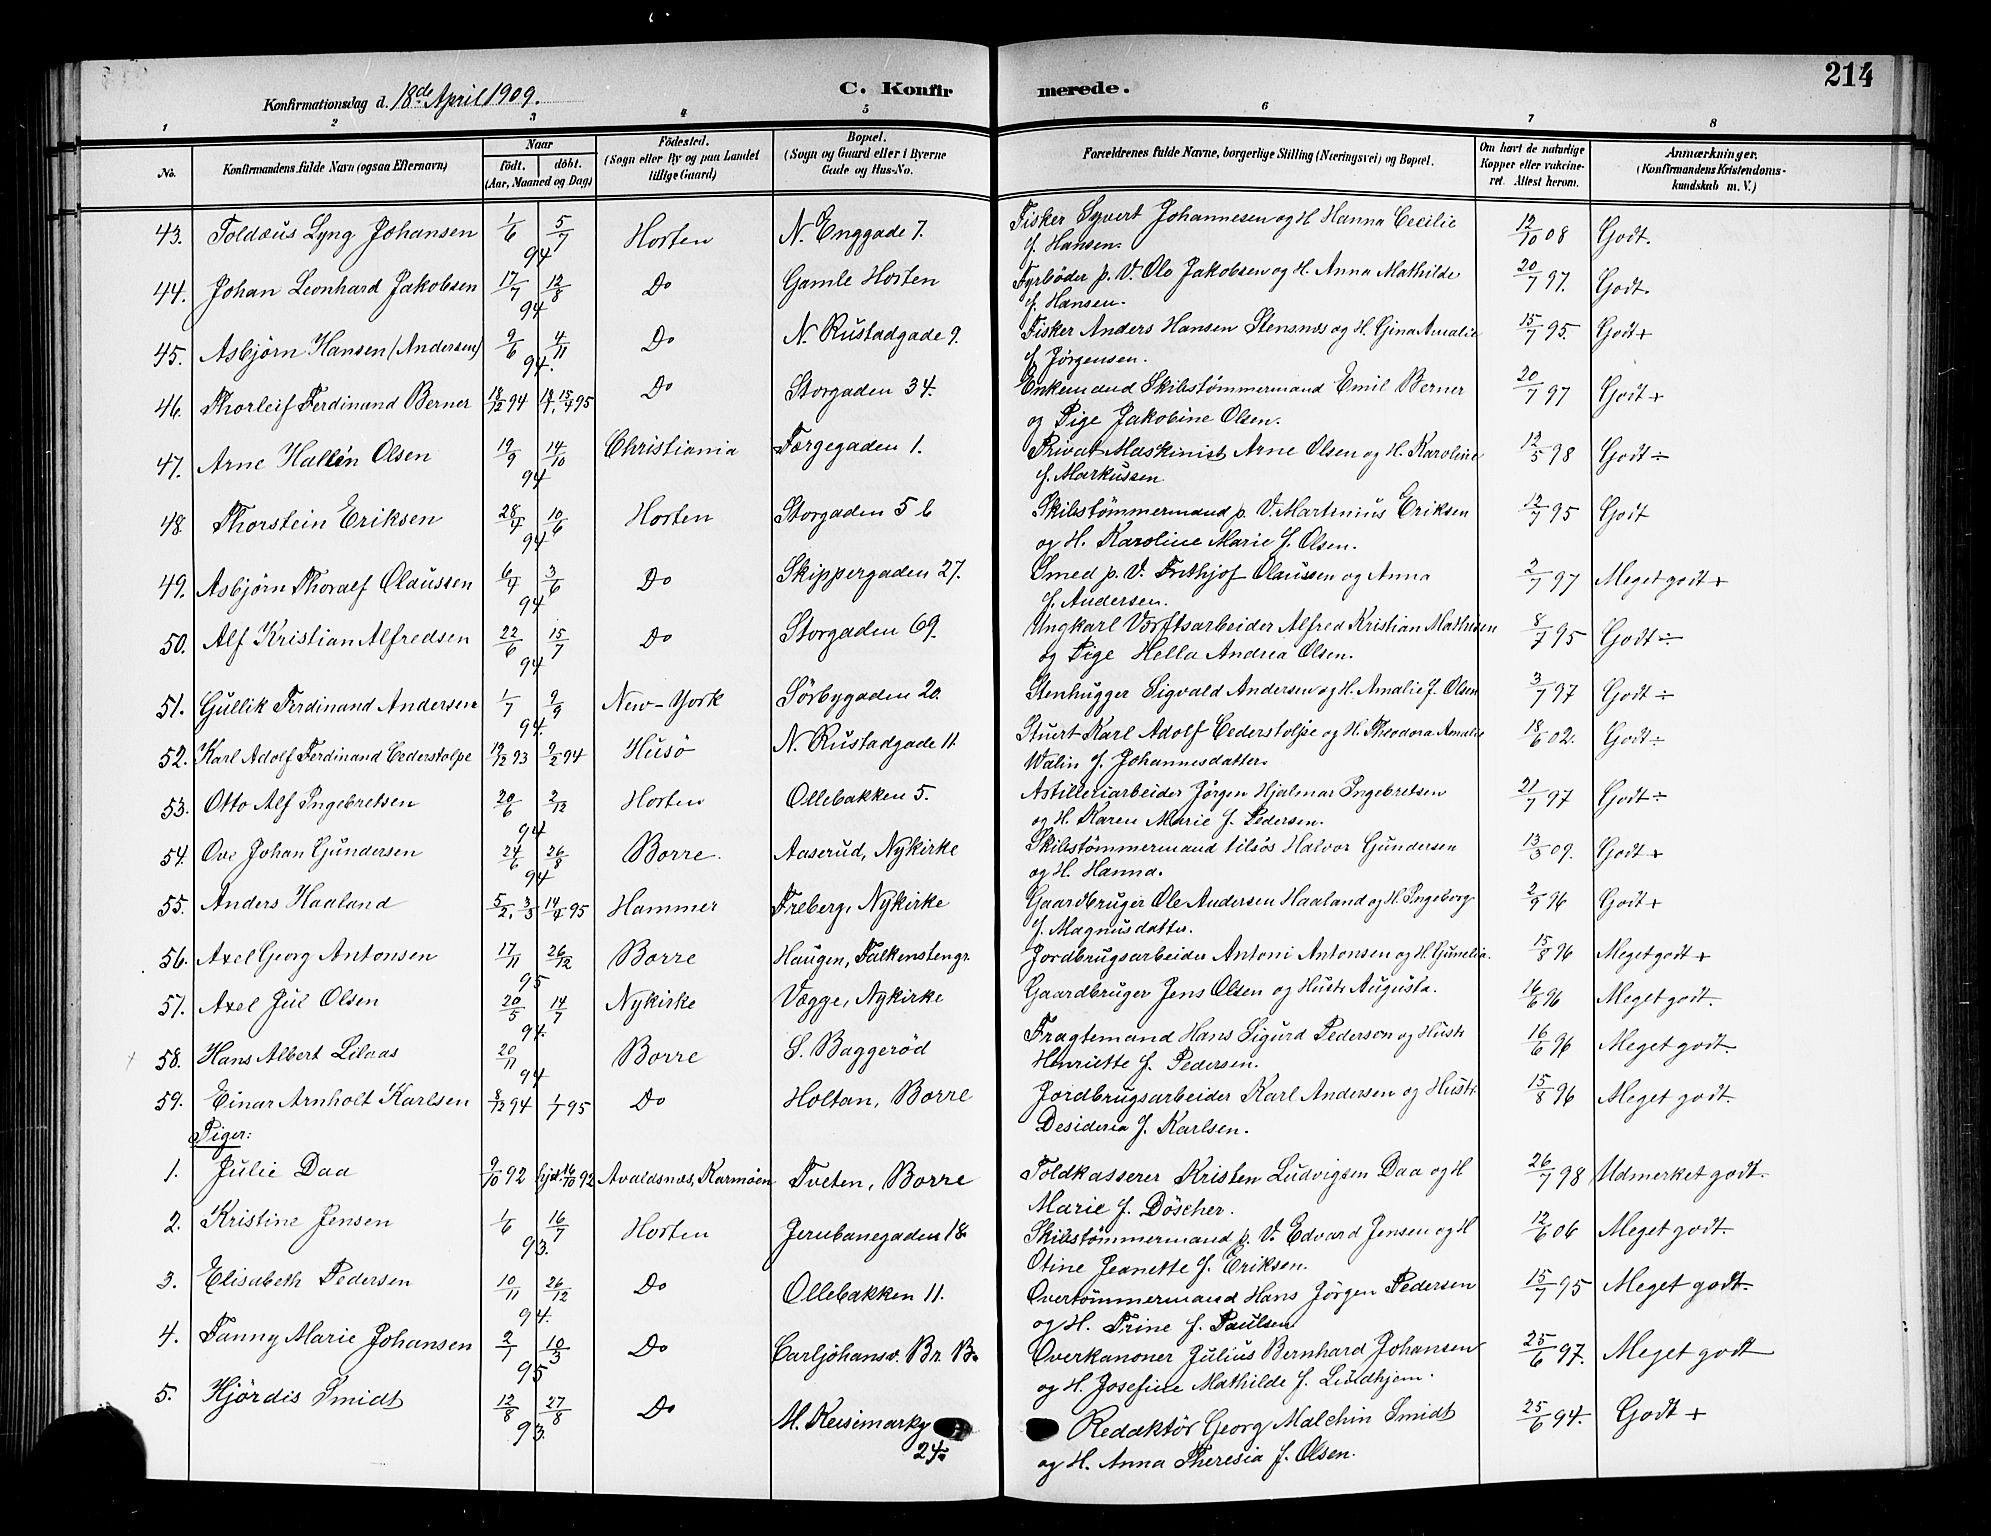 214
Konfirmationsdag d. 18de April 1909.
C. Konfirmerede.
1 2 3 4 5 6 7 8
No.
Konfirmandens fulde Navn (ogsaa Efternavn)
Naar
födt. döbt.
(Aar, Maaned og Dag)
Födested.
(Sogn eller By og paa Landet
tillige Gaard)
Bopæl.
(Sogn og Gaard eller i Byerne
Gade og Hus-No.
Forældrenes fulde Navne, borgerlige Stilling (Næringsvei) og Bopæl.
Om havt de naturlige
Kopper eller vakcine-
ret. Attest herom.
Anmærkninger.
(Konfirmandens Kristendoms-
kundskab m. V.)
43. Toldæus Lyng Johansen 1/6 5/7 94 Horten N. Enggade 7. Fisker Syvert Johannesen og H Hanna Cecilie
f. Hansen. 12/10 08 Godt.
44. Johan Leonhard Jakobsen 17/7 12/8 94 Do Gamle Horten Fyrböder p. V. Ole Jakobsen og H. Anna Mathilde
f. Hansen. 20/7 97. Godt.
45. Asbjörn Hansen (Andersen) 9/6 4/11 94. Do N. Rustadgade 9. Fisker Anders Hansen Stensnæs og H. Gina Amalie
f. Jørgensen. 15/7 95. Godt+
46. Thorleif Ferdinand Berner 18/12 94 15/4 95 Do Storgaden 34. Enkemand Skibstømmermand Emil Berner
og Pige Jakobine Olsen. 20/7 97 Godt+
47. Arne Hallén Olsen 19/9 14/10 94 Christiania Færgegaden 1. Privat Maskinist Arne Olsen og H. Karoline
f. Markussen 12/5 98 Godt ÷
48 Thorstein Eriksen 28/4 10/6 94 Horten Storgaden 5 b Skibstömmermand p. V. Martinius Eriksen
og H. Karoline Marie f. Olsen. 12/7 95 Godt
49. Asbjörn Thoralf Olaussen 6/4 3/6 94 Do Skippergaden 27. Smed p. V. Frithjof Olaussen og Anna
f. Andersen. 2/7 97 Meget godt +
50. Alf Kristian Alfredsen 22/6 15/7 94 Do Storgaden 69. Ungkarl Værftsarbeider Alfred Kristian Mathisen
og Pige Hella Andrea Olsen. 8/7 95 Godt ÷
51. Gullik Ferdinand Andersen 1/7 9/9 94. New-York Sörbygaden 20 Stenhugger Sigvald Andersen og H. Amalie f. Olsen 3/7 97 Godt ÷
52. Karl Adolf Ferdinand Cederstolpe 19/12 93 9/2 94 Husö N. Rustadgade 11. Stuert Karl Adolf Cederstolpe og H. Theodora Amalie
Walin f. Johannesdatter. 18/6 02. Godt ÷
53. Otto Alf Ingebretsen 20/6 2/12 94 Horten Ollebakken 5. Artilleriarbeider Jörgen Hjalmar Ingebretsen
og H. Karen Marie f. Pedersen. 21/7 97 Godt ÷
54. Ove Johan Gundersen 24/6 26/8 94 Borre. Aaserud, Nykirke Skibstömmermand tilsös Halvor Gundersen
og H. Hanna. 13/3 09. Godt +
55. Anders Haaland 5/2. 3/3 14/4 95 Hammer Freberg, Nykirke Gaardbruger Ole Andersen Haaland og H. Ingeborg
f. Magnusdatter. 2/9 96 Godt +
56. Axel Georg Antonsen 17/11 26/12 95 Borre Haugen, Falkenstengr. Jordbrugsarbeider Antoni Antonsen og H. Gunelia. 15/8 96 Meget godt +
57. Axel Jul Olsen 20/5 14/7 94. Nykirke Vægge, Nykirke Gaardbruger Jens Olsen og Hustr Augusta. 16/6 96 Meget godt.
58. Hans Albert Lilaas 20/11 94 Borre S. Baggeröd Fragtemand Hans Sigurd Pederson og Hustr
Henriette f. Pedersen. 16/6 96 Meget godt.
59. Einar Arnholt Karlsen 8/12 94 1/7 95 Do Holtan, Borre Jordbrugsarbeider Karl Andersen og Hustr
Desideria f. Karlsen. 15/8 96 Meget godt.
Piger:
1. Julie Daa 9/10 92 hjd. 16/10 92 Avaldsnæs, Karmöen Tveten, Borre Toldkasserer Kristen Ludvigsen Daa og H
Marie f. Döscher. 26/7 98 Udmerket godt.
2. Kristine Jensen 1/6 16/7 93. Horten Jernbanegaden 18 Skibstömmermand p. V. Edvard Jensen og H
Otine Jeanette f. Eriksen. 12/6 06 Meget godt.
3. Elisabeth Pedersen 10/11 26/12 94. Do Ollebakken 11. Overtömmermand Hans Jörgen Pedersen
og H. Trine f. Paulsen 15/7 95 Meget godt.
4. Fanny Marie Johansen 2/7 10/3 95 Do Carljohansv. Br. B. Overkanoner Julius Bernhard Johansen
og H. Josefine Mathilde f. Lundhjem. 25/6 97. Meget godt
5. Hjördis Smidt 12/8 27/8 93. Do M. Reisimarkg
24 Redaktör Georg Malchin Smidt
og H. Anna Theresia f. Olsen. 25/6 94. Godt +